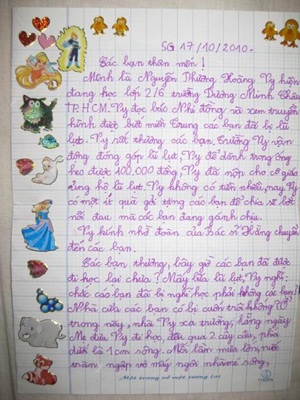 SG 17/10/2010.
Các bạn thân mến!
Mình là Nguyễn Phương Hoàng Vy hiện
đang học lớp 2/6 trường Dương Minh Châu
TP.HCM. Vy đọc báo Nhi đồng và xem truyền
hình được biết miền Trung các bạn đã bị lũ
lụt. Vy rất thương các bạn. Trường Vy vận
động đóng góp lũ lụt, Vy để dành trong ống
heo được 400.000 đồng Vy đã nộp cho cô giáo
ủng hộ lũ lụt. Vy không có tiền nhiều, nay Vy
có một ít quà gởi tặng các bạn để chia sẻ bớt
nỗi đau mà các bạn đang gánh chịu.
Vy kính nhờ đoàn của Bác sĩ Hồ chuyển
đến các bạn.
Các bạn thương, bây giờ các bạn đã được
đi học lại chưa? Mấy bữa lũ lụt, Vy nghĩ
chắc các bạn đã bị nghỉ học phải không các bạn?
Nhà cửa các bạn có bị cuốn trôi không?
trong này, nhà Vy xa trường, hằng ngày
Mẹ đưa Vy đi học, đều qua 2 cây cầu, phía
dưới là 1 con sông. Mỗi lần mưa lớn, nước
tràn ngập và mấy ngôi nhà mé sông.